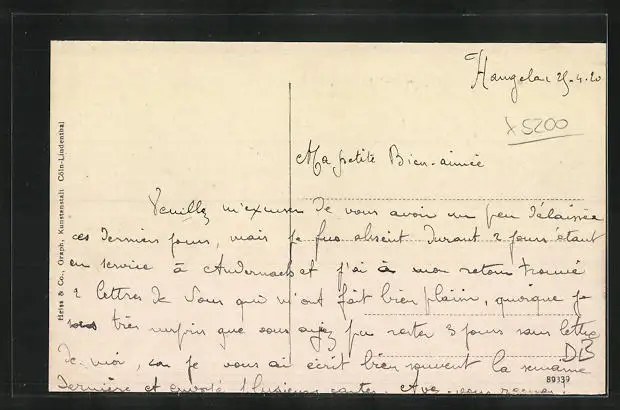 Hangelar 25-4-20
x 5200
Ma petite Bien-aimée
Veuillez m'excuser de vous avoir un peu délaissée
ces derniers jours, mais je fus absent durant 2 jours étant
en service à Andernach et j'ai à mon retour trouvé
2 lettres de vous qui m'ont fait bien plaisir, quoique je
suis très surpris que vous ayez pu rester 3 jours sans lettre
de moi, car je vous ai écrit bien souvent la semaine
DB
dernière et envoyé plusieurs cartes.
89339
Heiss & Co., Graph. Kunstanstalt Cöln-Lindenthal